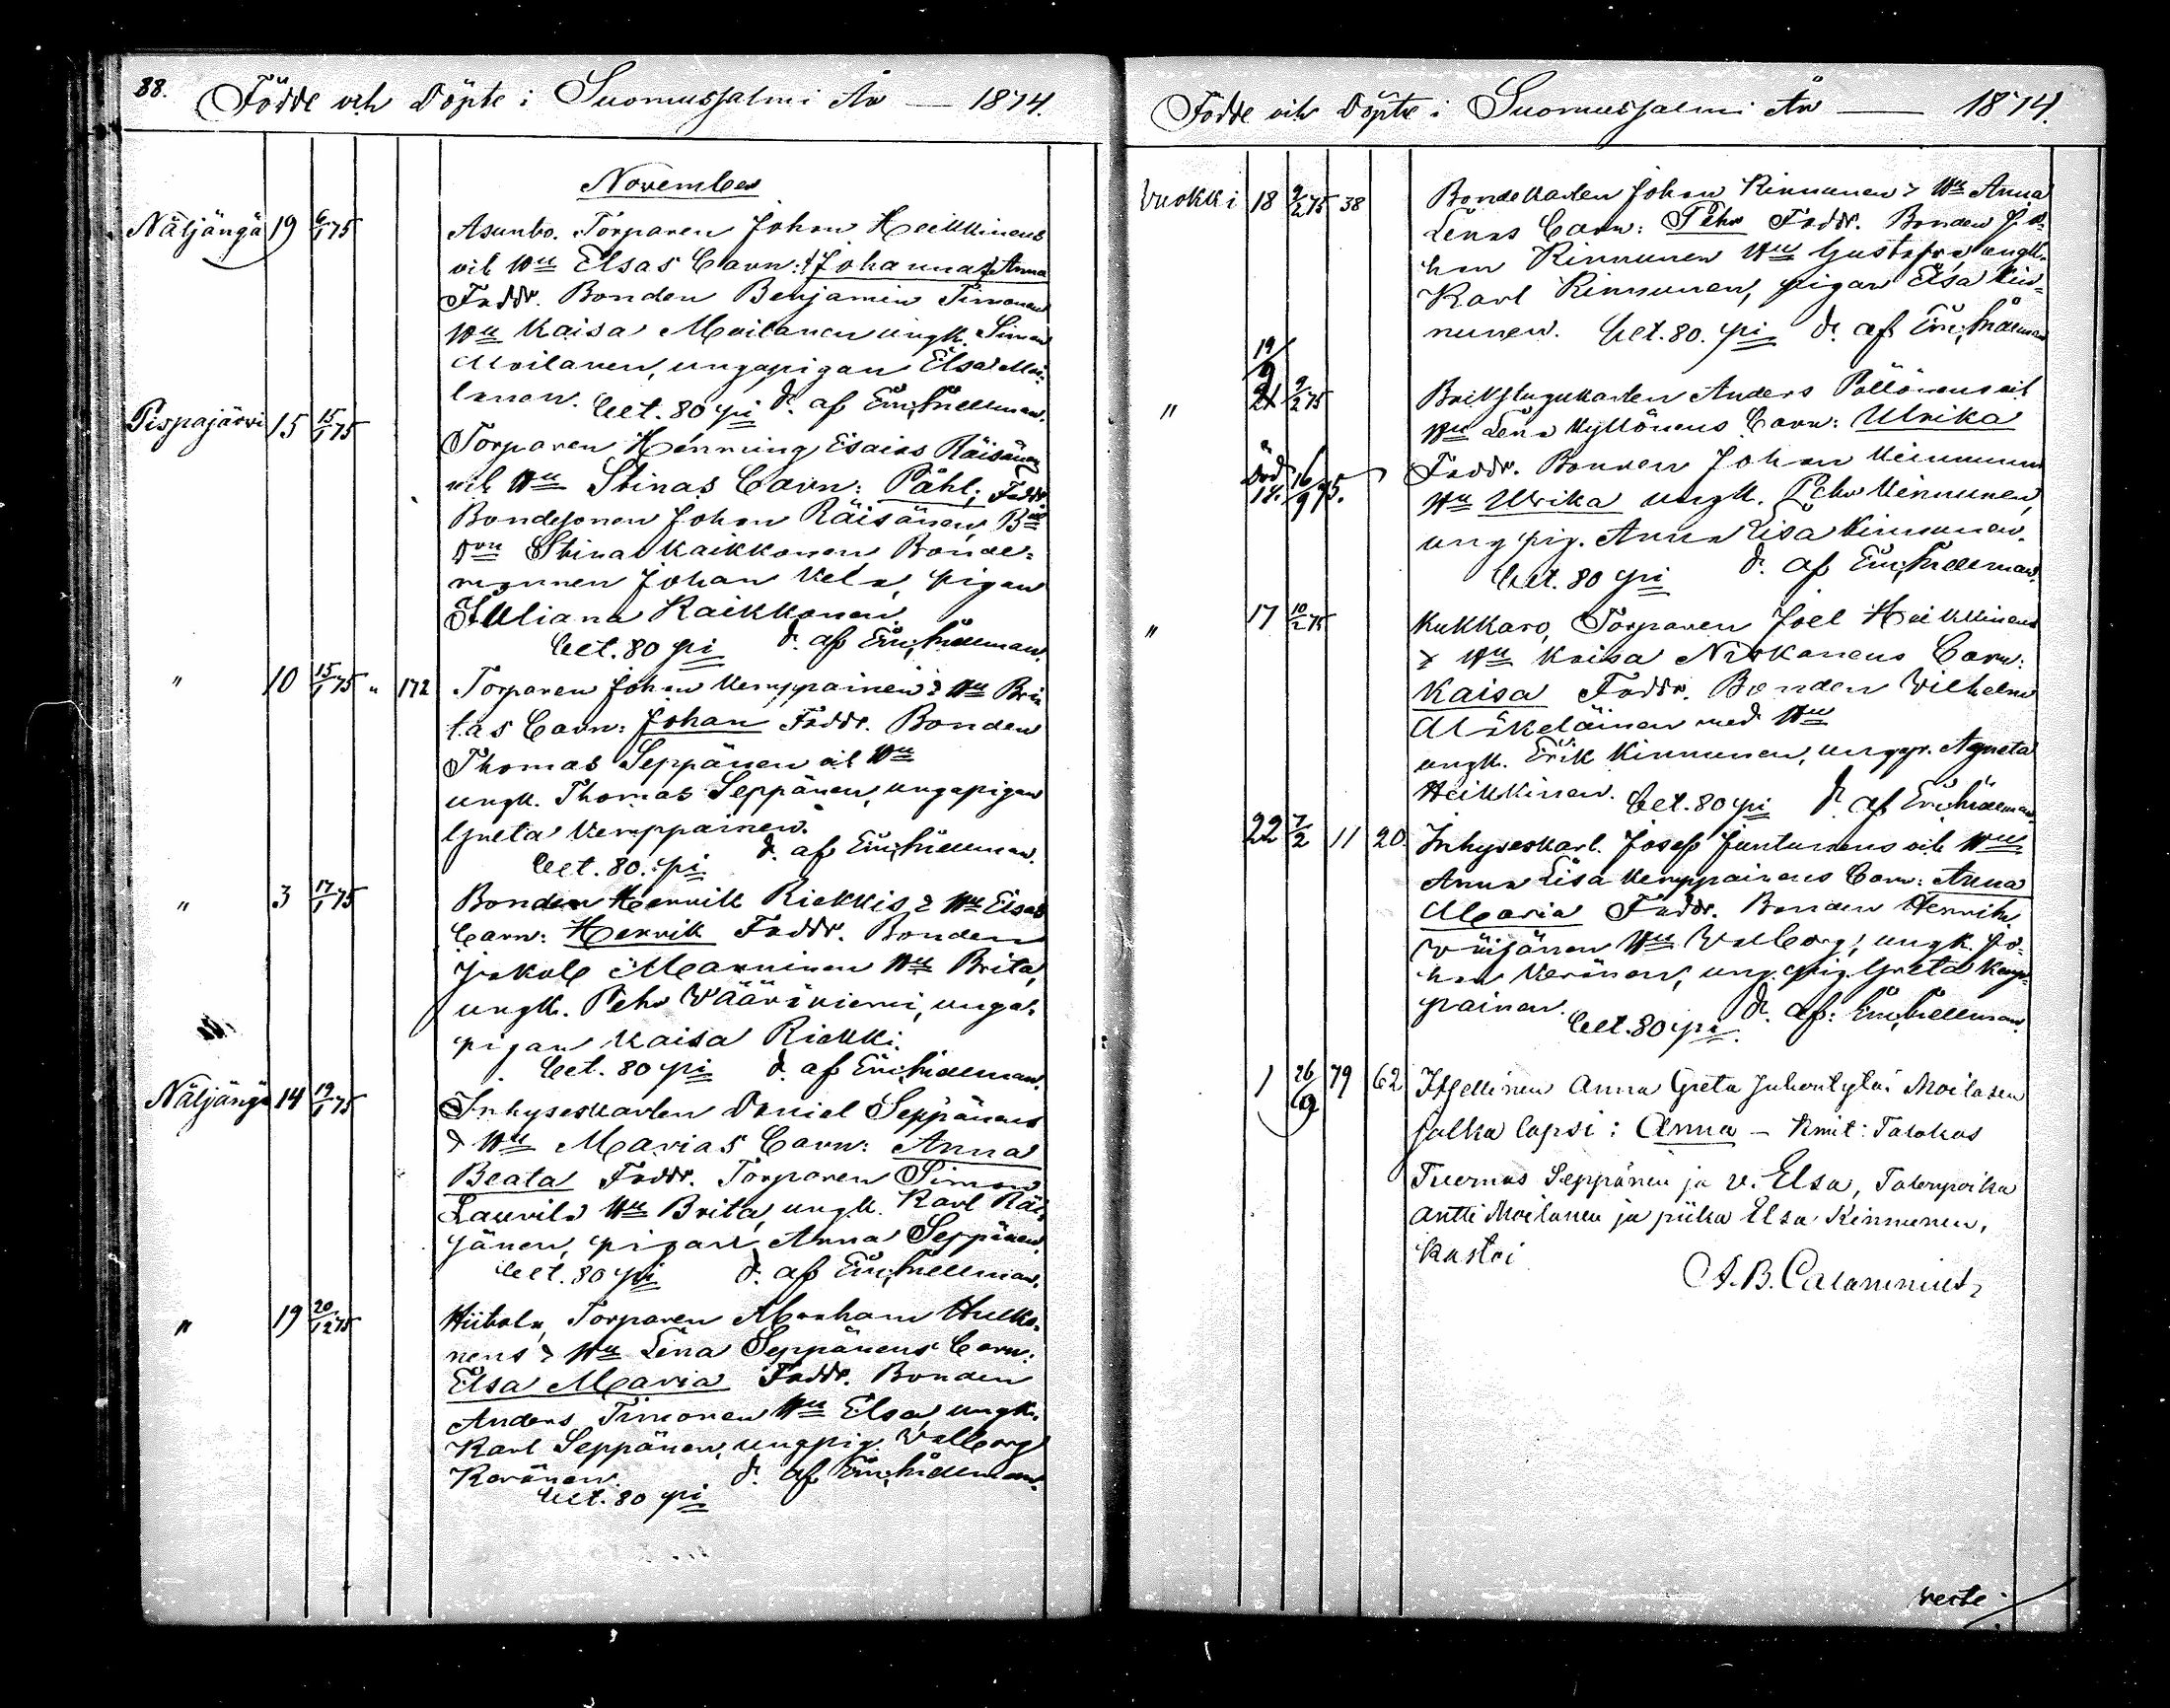 88. Födde och Döpte i Suomussalmi År — 1874.
November
Näljängä 19 6/1 75 Asunbo. Torparen Johan Heikkinens
och Hu Elsas barn: Johanna Anna
Faddr. Bonden Benjamin Timonen
Hu Kaisa Moilanen ungk. Simon
Moilanen, ungapigan Elsa Moi-
lanen. bet. 80 pi d. af
Pispajärvi 15 15/1 75 Torparen Henning Esaias Räisänen
och Hu Stinas barn: Påhl; Faddr.
Bondesonen Johan Räisänen, Bde
dru Stina Kaikkonen Bonde-
mannen Johan Kela, pigan
Juliana Kaikkonen.
bet. 80 pi d. af
" 10 15/1 75 " 172 Torparen Johan Kemppainen & Hu Bri
tas barn: Johan Faddr. Bonden
Thomas Seppänen och Hu
ungk. Thomas Seppänen, ungapigan
Greta Kemppainen.
bet. 80. pi d. af
" 3 17/1 75 Bonden Henrik Riekkis & Hu Elsas
barn: Henrik Faddr. Bonden
Jakob Manninen Hu Brita,
ungk. Pehr Vääriniemi, unga-
pigan Kaisa Riekki.
bet. 80 pi d. af
Näljängä 14 19/1 75 Inhyseskarlen Daniel Seppänens
& Hu Marias barn: Anna
Beata Faddr. Torparen Simon
Laurila Hu Brita, ungk. Karl Räi-
sänen, pigan Anna Seppänen.
bet. 80 pi d. af
" 19 20/12 75 Torparen Abraham Hulko-
nens & Hu Lena Seppänens barn:
Elsa Maria Faddr. Bonden
Anders Timonen Hu Elsa, ungk.
Karl Seppänen, ungpig. Valborg
Keränen. d. af
bet. 80 pi
Födde och Döpte i Suomussalmi År — 1874.
Vuokki 18 9/2 75 38 Bondekarlen Johan Kinnunen & Hu Anna
Lenas barn: Pehr Faddr. Bonden Jo-
han Kinnunen Hu Gustafva, ungk.
Karl Kinnunen, pigan Elsa Kin-
nunen. bet. 80. pi d. af
19/9
" 21 9/2 75 Anders Pöllönens och
Hu Lena Kyllönens barn: Ulrika
Död 16/9 75. Faddr. Bonden Johan Kinnunen
12. Hu Ulrika ungk. Pehr Kinnunen,
ung pig. Anna Lisa Kinnunen.
bet. 80 pi d. af
" 17 10/2 75 Kukkaro, Torparen Joel Heikkinens
& Hu Kaisa Niskanens barn:
Kaisa Faddr. Bonden Vilhelm
Mikeläinen med Hu
ungk. Erik Kinnunen, ungp. Agneta
Heikkinen. bet. 80 pi d. af
22 7/2 11 20. Inhyseskarl. Josef Juntunens och Hu
Anna Lisa Kemppainens barn: Anna
Maria Faddr. Bonden Henrik
Väisänen Hu Valborg, ungk. Jo-
han Keränen, ung. pig. Greta Kemp-
painen. d. af:
bet. 80 pi.
1 26/9 79 62 Itsellinen Anna Greta Juhontytär Moilasen
salka lapsi: Anna — Kmit: Talokas
Tuomas Seppänen ja v. Elsa, Talonpoika
Antti Moilanen ja piika Elsa Kinnunen,
Kastoi
A. B. Calamnius
verte